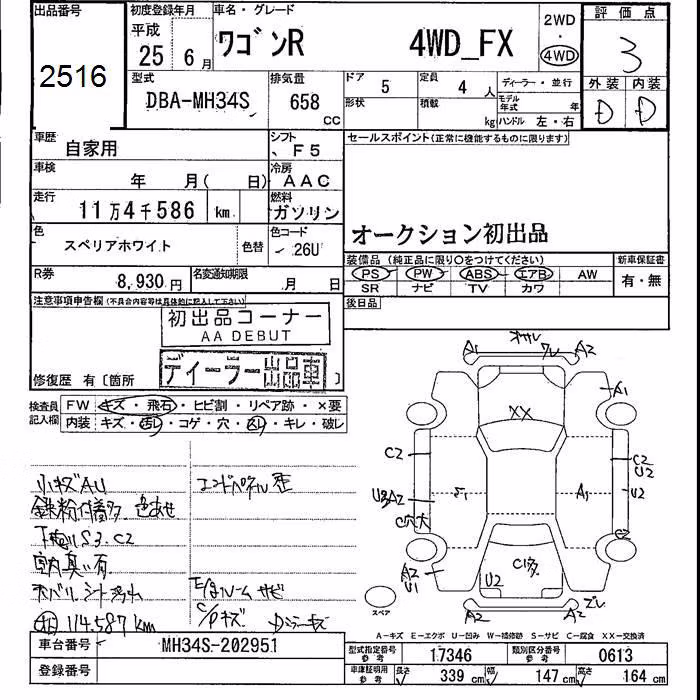 出品番号
2516
初度登録年月
平成
25 6月
車名・グレード
ワゴンR 4WD_FX
2WD
・
4WD
評価点
3
外装 内装
D D
型式
DBA-MH34S
排気量
658
CC
ドア 5
定員 4 人
形状
積載 kg
ディーラー・並行
モデル年式 年
ハンドル 左・右
車歴 自家用
シフト F5
車検 年 月( 日)
冷房 AAC
走行 11万4千586 km
燃料 ガソリン
色 スペリアホワイト 色替
色コード 26U
R券 8,930円
名変通知期限 月 日
セールスポイント(正常に機能するものに限ります)
オークション初出品
装備品(純正品に限り○をつけてください)
PS PW ABS エアB AW
SR ナビ TV カワ
新車保証書
有・無
後日品
注意事項申告欄(不具合内容等は具体的に記入して下さい)
初出品コーナー
AA DEBUT
ディーラー出品車
修復歴 有〔箇所 〕
検査員記入欄
FW キズ・飛石・ヒビ割・リペア跡・×要
内装 キズ・汚レ・コゲ・穴・凶レ・キレ・破レ
小キズAU
鉄粉付着多 色あせ
下廻りS3.C2
室内臭い有
114.587km
エンドパネル歪
E/gルーム サビ
C/Pキズ
A1 A2
XX
A1
C2
C2
U2
U2
A2
A1
C穴大
C2
A2
U1
U2
C1多
A2 A2
スペア
A-キズ E-エクボ U-凹み W-補修跡 S-サビ C-腐食 XX-交換済
車台番号 MH34S-202951
登録番号
型式指定番号 参考 17346
類別区分番号 参考 0613
車庫証明用 参考 長さ 339 cm 幅 147 cm 高さ 164 cm